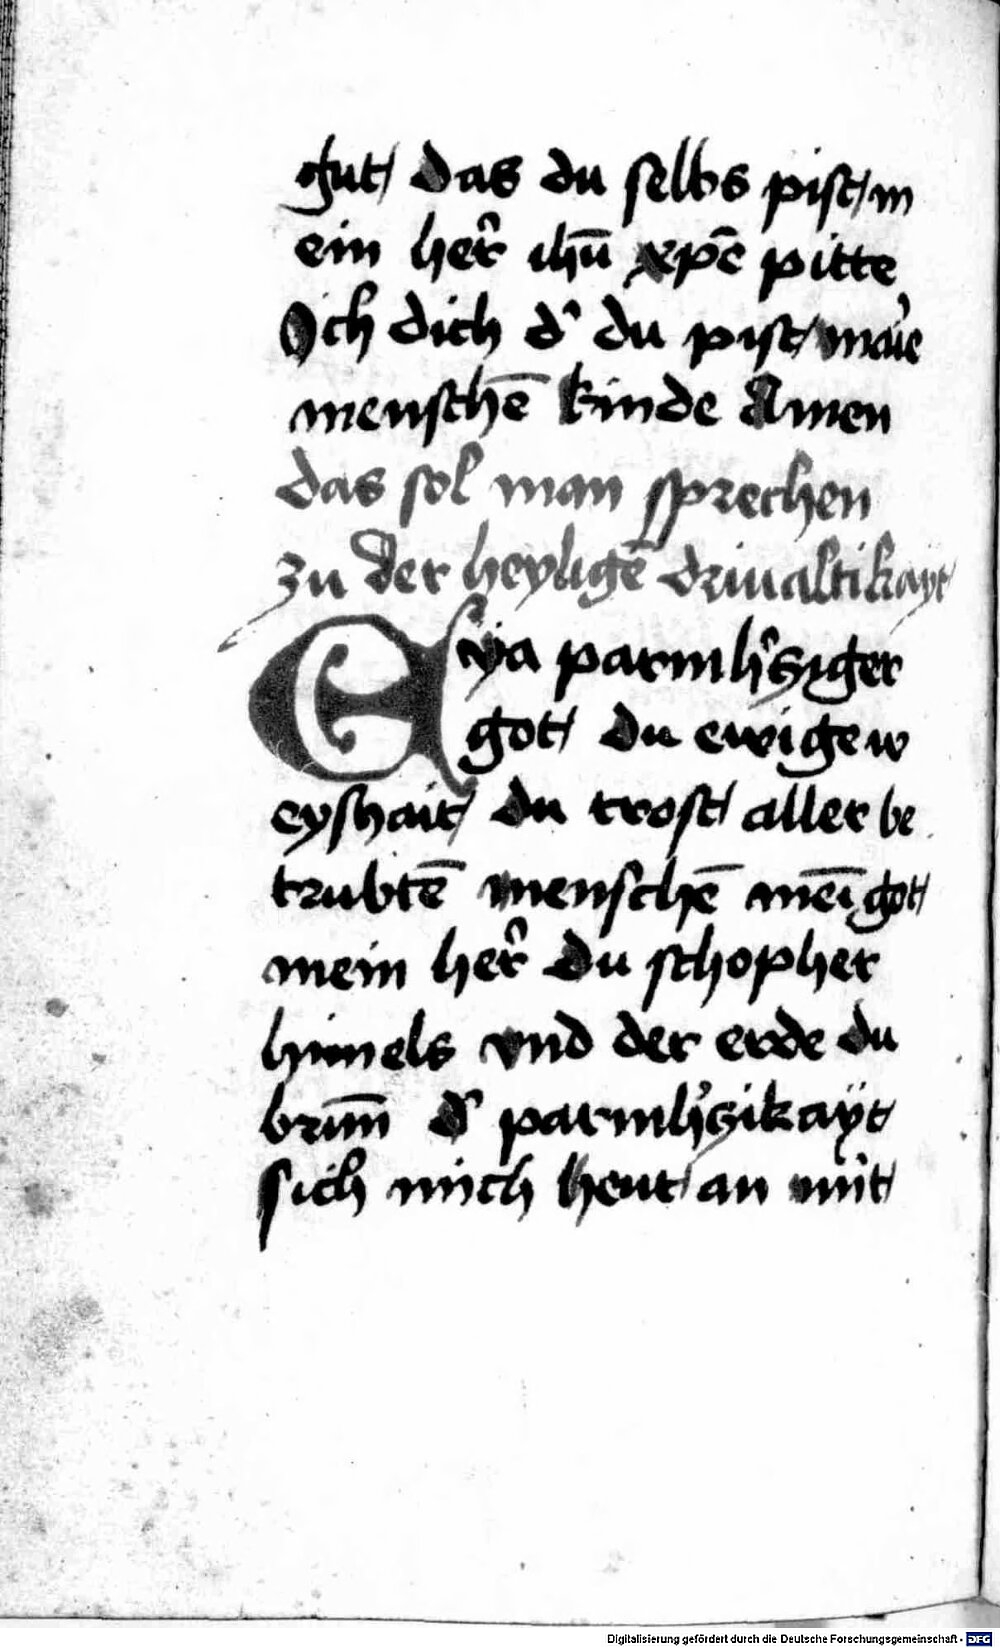 gut das du selbs pist m
ein her̃ ihũ xp̃e pitte
Ich dich d' du pist marie
menschẽ kinde Amen
das sol man sprechen
zu der heyligẽ driualtikayt
Eya parmh'ziger
got du ewige w
eyshait du trost aller be
trubtẽ menschẽ meı̃ got
mein her̃ du schopher
himels vnd der erde du
brun̄ d' parmh'zikayt
sich mich heut an mit
Digitalisierung gefördert durch die Deutsche Forschungsgemeinschaft - DFG